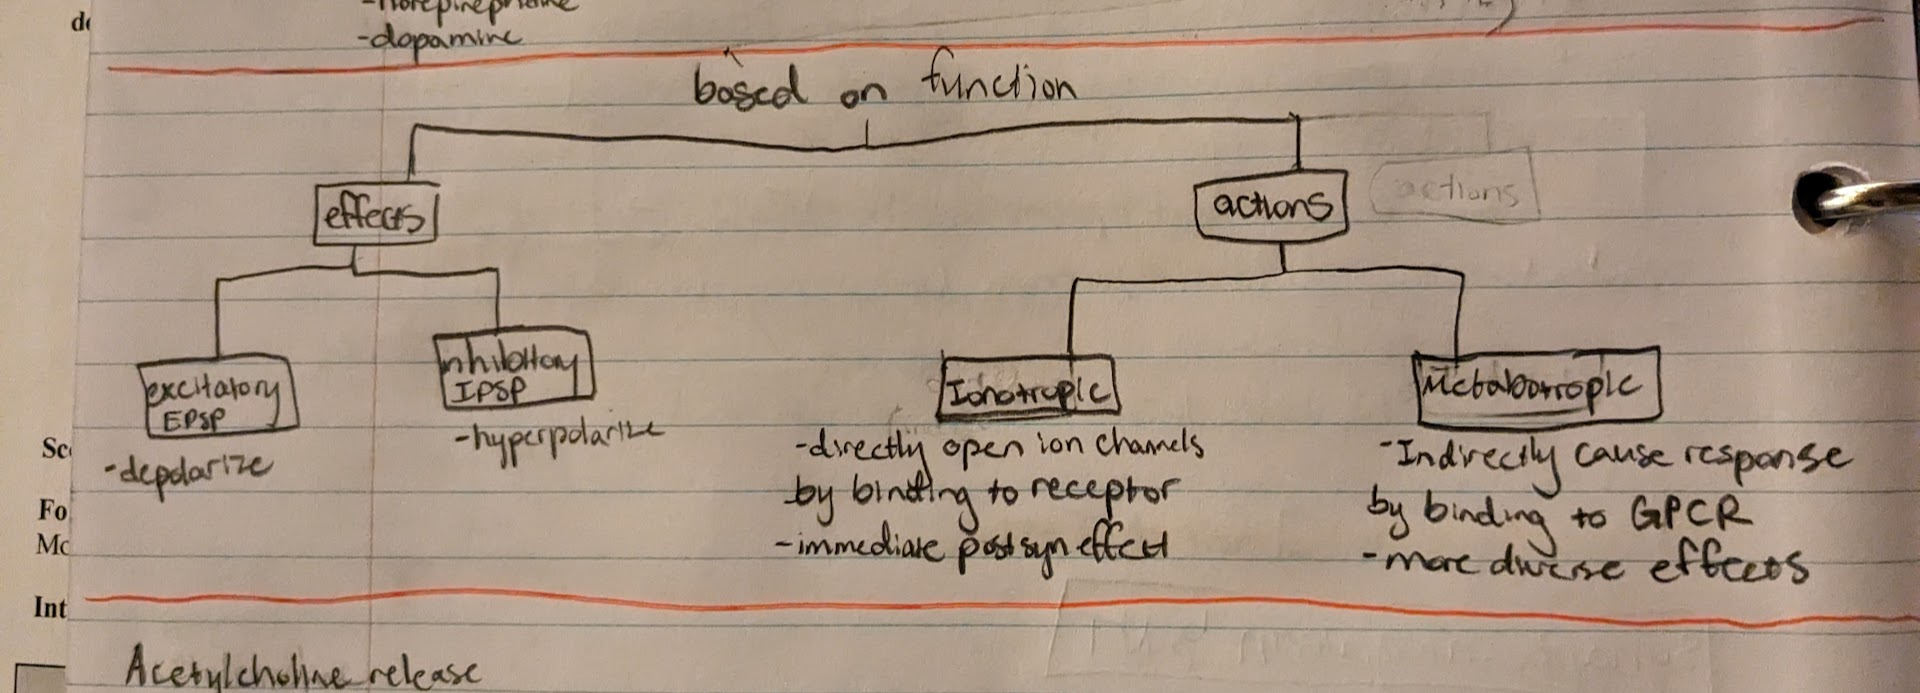 -norepinephrine
de
-dopamine
based on function
effects
actions
actions
excitatory
EPSP
inhibitory
IPSP
Ionotropic
Metabotropic
-depolarize
-hyperpolarize
-directly open ion channels
by binding to receptor
-immediate postsyn effect
-Indirectly cause response
by binding to GPCR
-more diverse effects
Sc
Fo
Mc
Int
Acetylcholine release